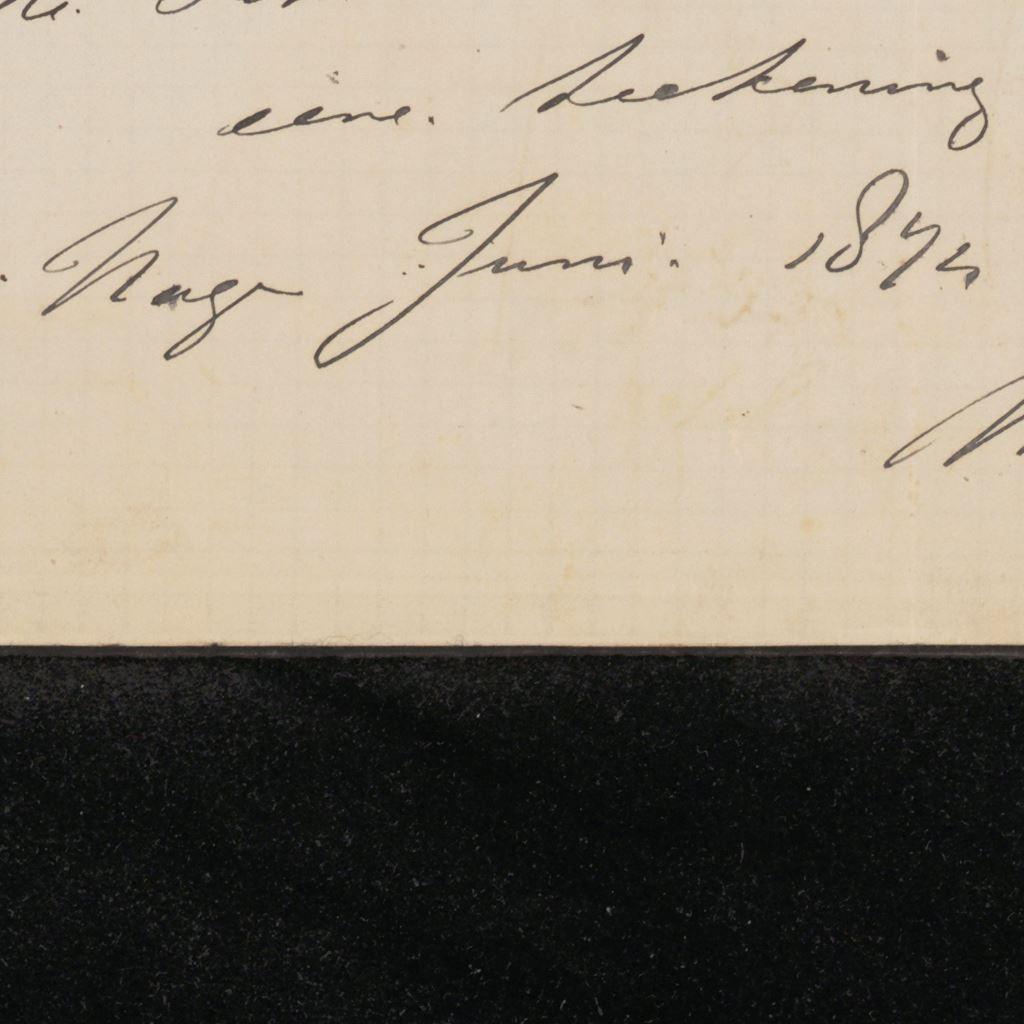 eene teekening
Hage Juni. 1874